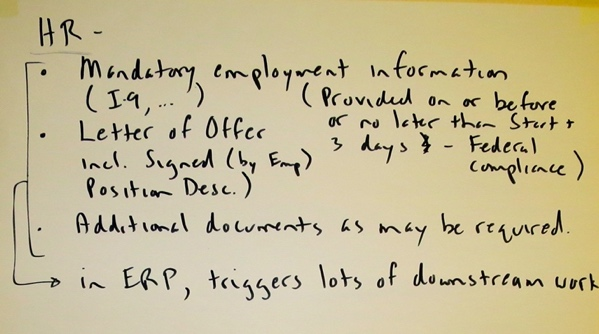 HR -
• Mandatory employment information
(I-9, ...) (Provided on or before
or no later than Start +
3 days - Federal
compliance)
• Letter of Offer
incl. Signed (by Emp)
Position Desc.)
• Additional documents as may be required.
→ in ERP, triggers lots of downstream work